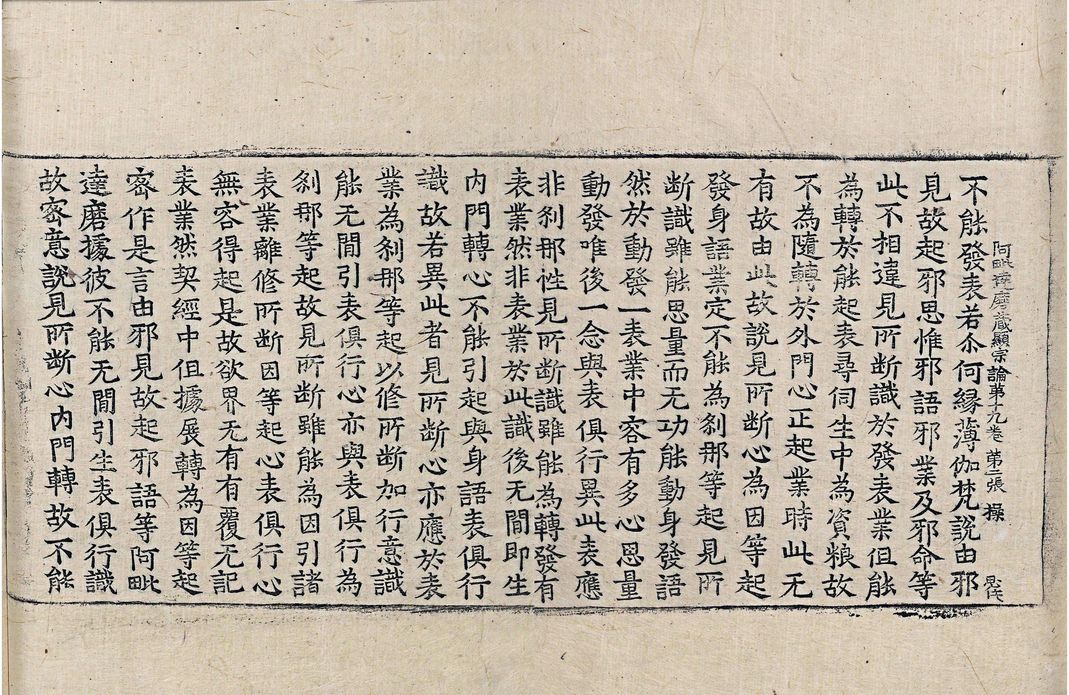 阿毗達磨藏顯宗論第十九卷 第二張 操
不能發表若尒何緣薄伽梵說由邪
見故起邪思惟邪語邪業及邪命等
此不相違見所断識於發表業但能
為轉於能起表尋伺生中為資粮故
不為隨轉於外門心正起業時此无
有故由此故說見所断心為因等起
發身語業定不能為刹那等起見所
断識雖能思量而无功能動身發語
然於動發一表業中容有多心思量
動發唯後一念與表俱行異此表應
非刹那性見所断識雖能為轉發有
表業然非表業於此識後无閒即生
內門轉心不能引起與身語表俱行
識故若異此者見所断心亦應於表
業為刹那等起以修所断加行意識
能无閒引表俱行心亦與表俱行為
刹那等起故見所断雖能為因引諸
表業離修所断因等起心表俱行心
無容得起是故欲界无有有覆无記
表業然契經中但據展轉為因等起
宻作是言由邪見故起邪語等阿毗
達磨據彼不能无閒引生表俱行識
故宻意說見所断心內門轉故不能